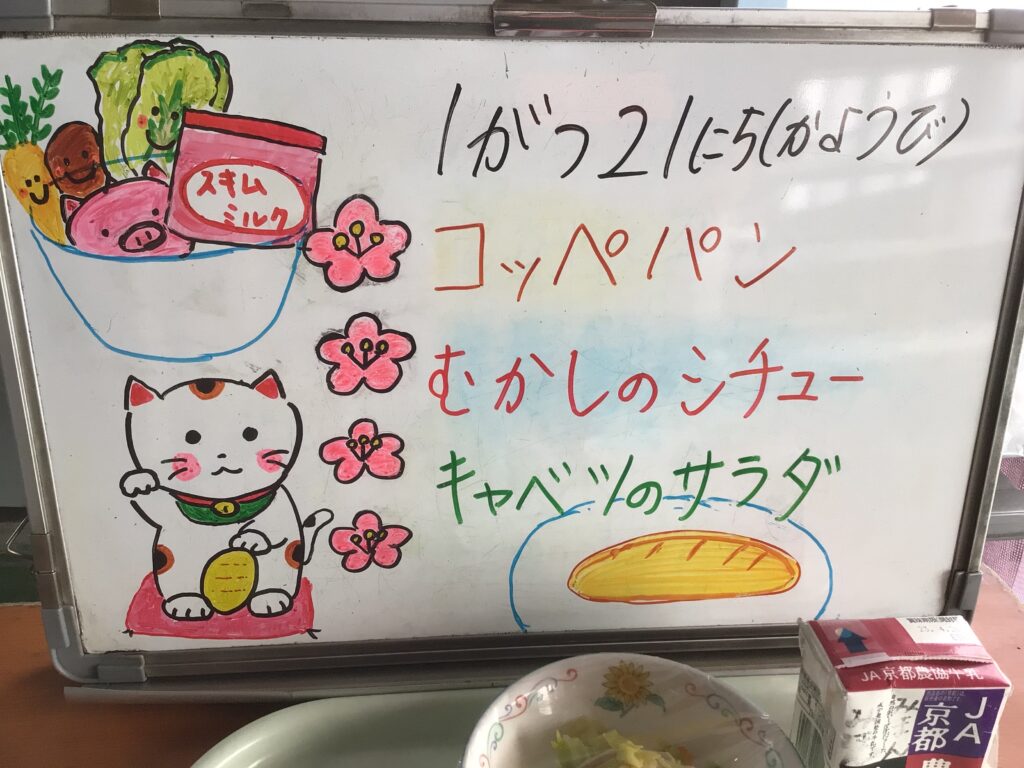 1がつ21にち(かようび)
スキム
ミルク
コッペパン
むかしのシチュー
キャベツのサラダ
JA京都農協牛乳
JA
京都
農